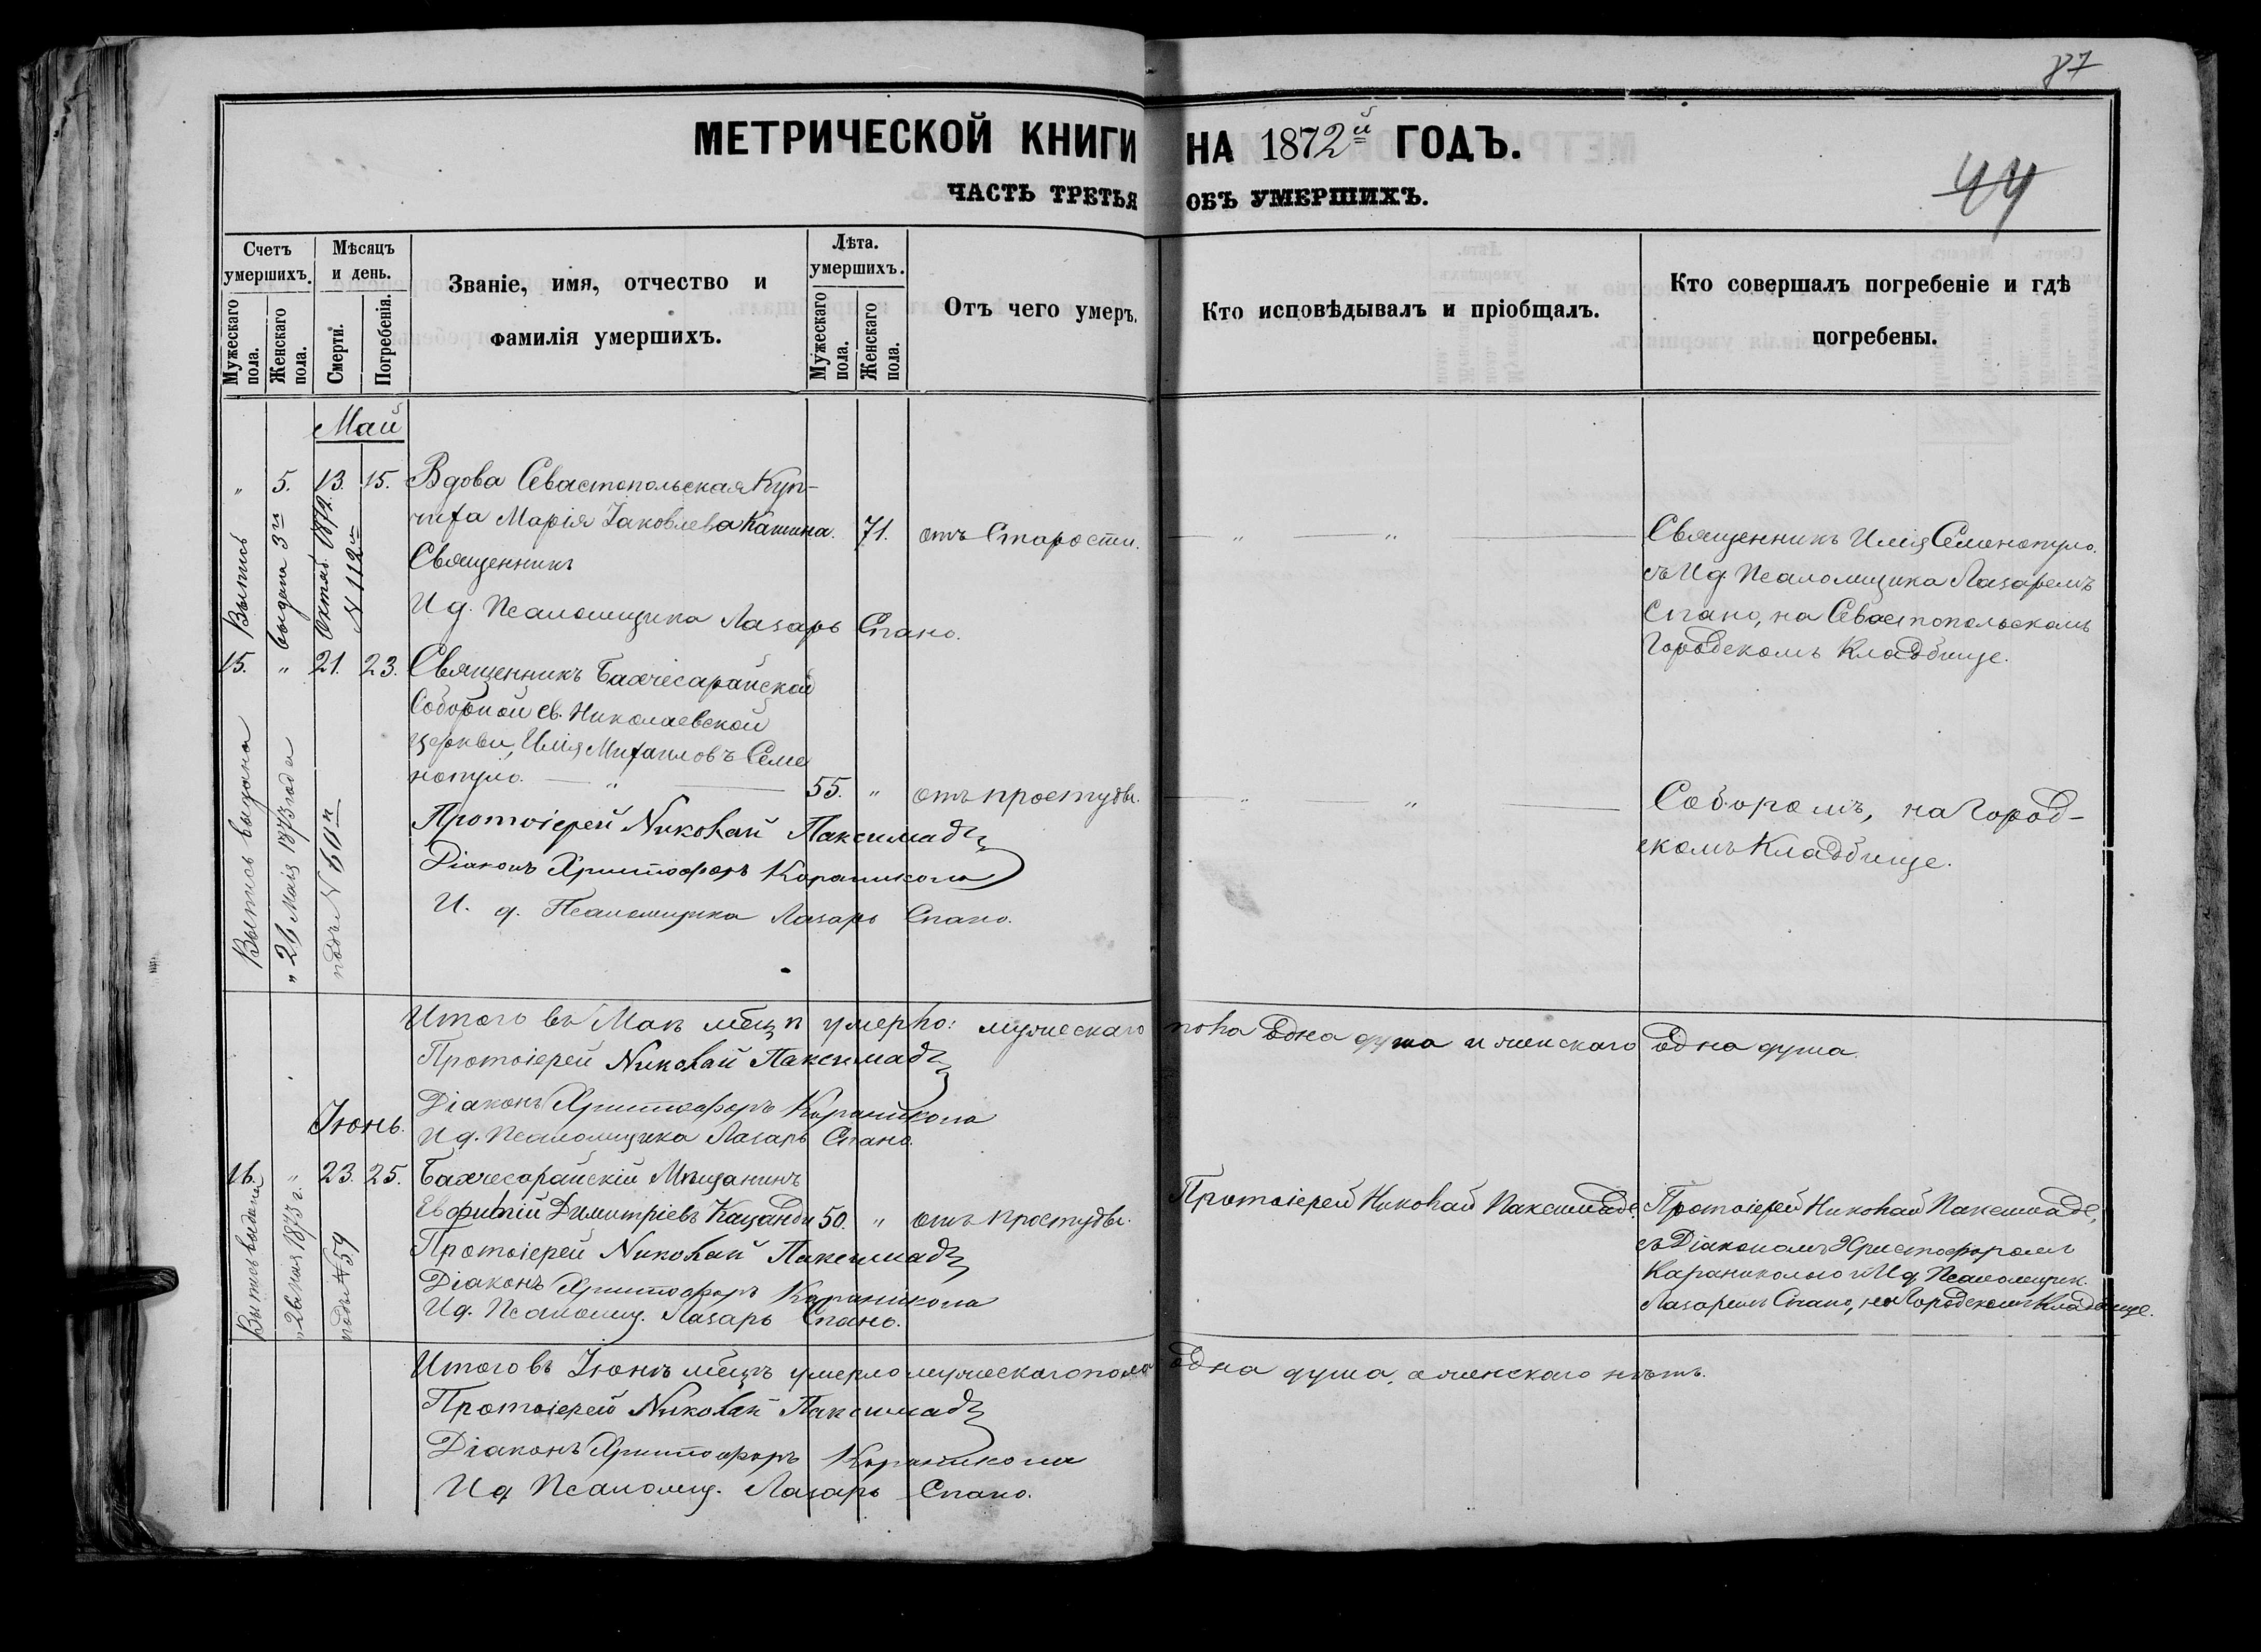 87
МЕТРИЧЕСКОЙ КНИГИ НА 1872й ГОДЪ.
44
ЧАСТЬ ТРЕТЬЯ ОБЪ УМЕРШИХЪ.
Счетъ умершихъ.
Мужескаго пола.
Женскаго пола.
Мѣсяцъ и день.
Смерти.
Погребенія.
Званіе, имя, отчество и
фамилія умершихъ.
Лѣта. умершихъ.
Мужескаго пола.
Женскаго пола.
Отъ чего умеръ.
Кто исповѣдывалъ и пріобщалъ.
Кто совершалъ погребеніе и гдѣ
погребены.
Май
" 5. 13. 15. Вдова Севастопольская Куп-
чиха Марія Іаковлева Кашина. 71. отъ Старости. " "
Священникъ
И д. Псаломщика Лазарь Спано.
Священникъ Илія Семенопуло.
съ И д. Псаломщика Лазаремъ
Спано, на Севастопольскомъ
Городскомъ Кладбище.
Выпись
выдана 3го
Октяб. 1872.
N 112м
15. " 21. 23. Священникъ Бахчесарайской
Соборной св. Николаевской
церкви, Илія Михаиловъ Семе
нопуло. " 55. " отъ простуды. " "
Протоіерей Николай Паксимаде
Діаконъ Христофоръ Караникола
И. д. Псаломщика Лазарь Спано.
Соборомъ, на Город-
скомъ Кладбище.
Выпись выдана
" 26 Маія 1873 года
подъ N 60м
Итого въ Маѣ мѣсцѣ умерло: мужескаго пола одна душа и женскаго одна душа.
Протоіерей Николай Паксимаде
Діаконъ Христофоръ Караникола
И д. Псаломщика Лазарь Спано.
Іюнь.
16. " 23. 25. Бахчесарайскій Мѣщанинъ
Евфимій Димитріевъ Кацанди 50. " отъ простуды.
Протоіерей Николай Паксимаде
Діаконъ Христофоръ Караникола
И д. Псаломщ. Лазарь Спано.
Протоіерей Николай Паксимаде.
Протоіерей Николай Паксимаде,
съ Діакономъ Христофоромъ
Караниколою и И д. Псаломщик.
Лазаремъ Спано, на Городскомъ Кладбище.
Выпись выдана
" 26 мая 1873 г.
подъ N 59
Итого въ Іюнѣ мѣсцѣ умерло мужескаго пола одна душа, а женскаго нѣтъ.
Протоіерей Николай Паксимаде
Діаконъ Христофоръ Караникола
И д Псаломщ. Лазарь Спано.